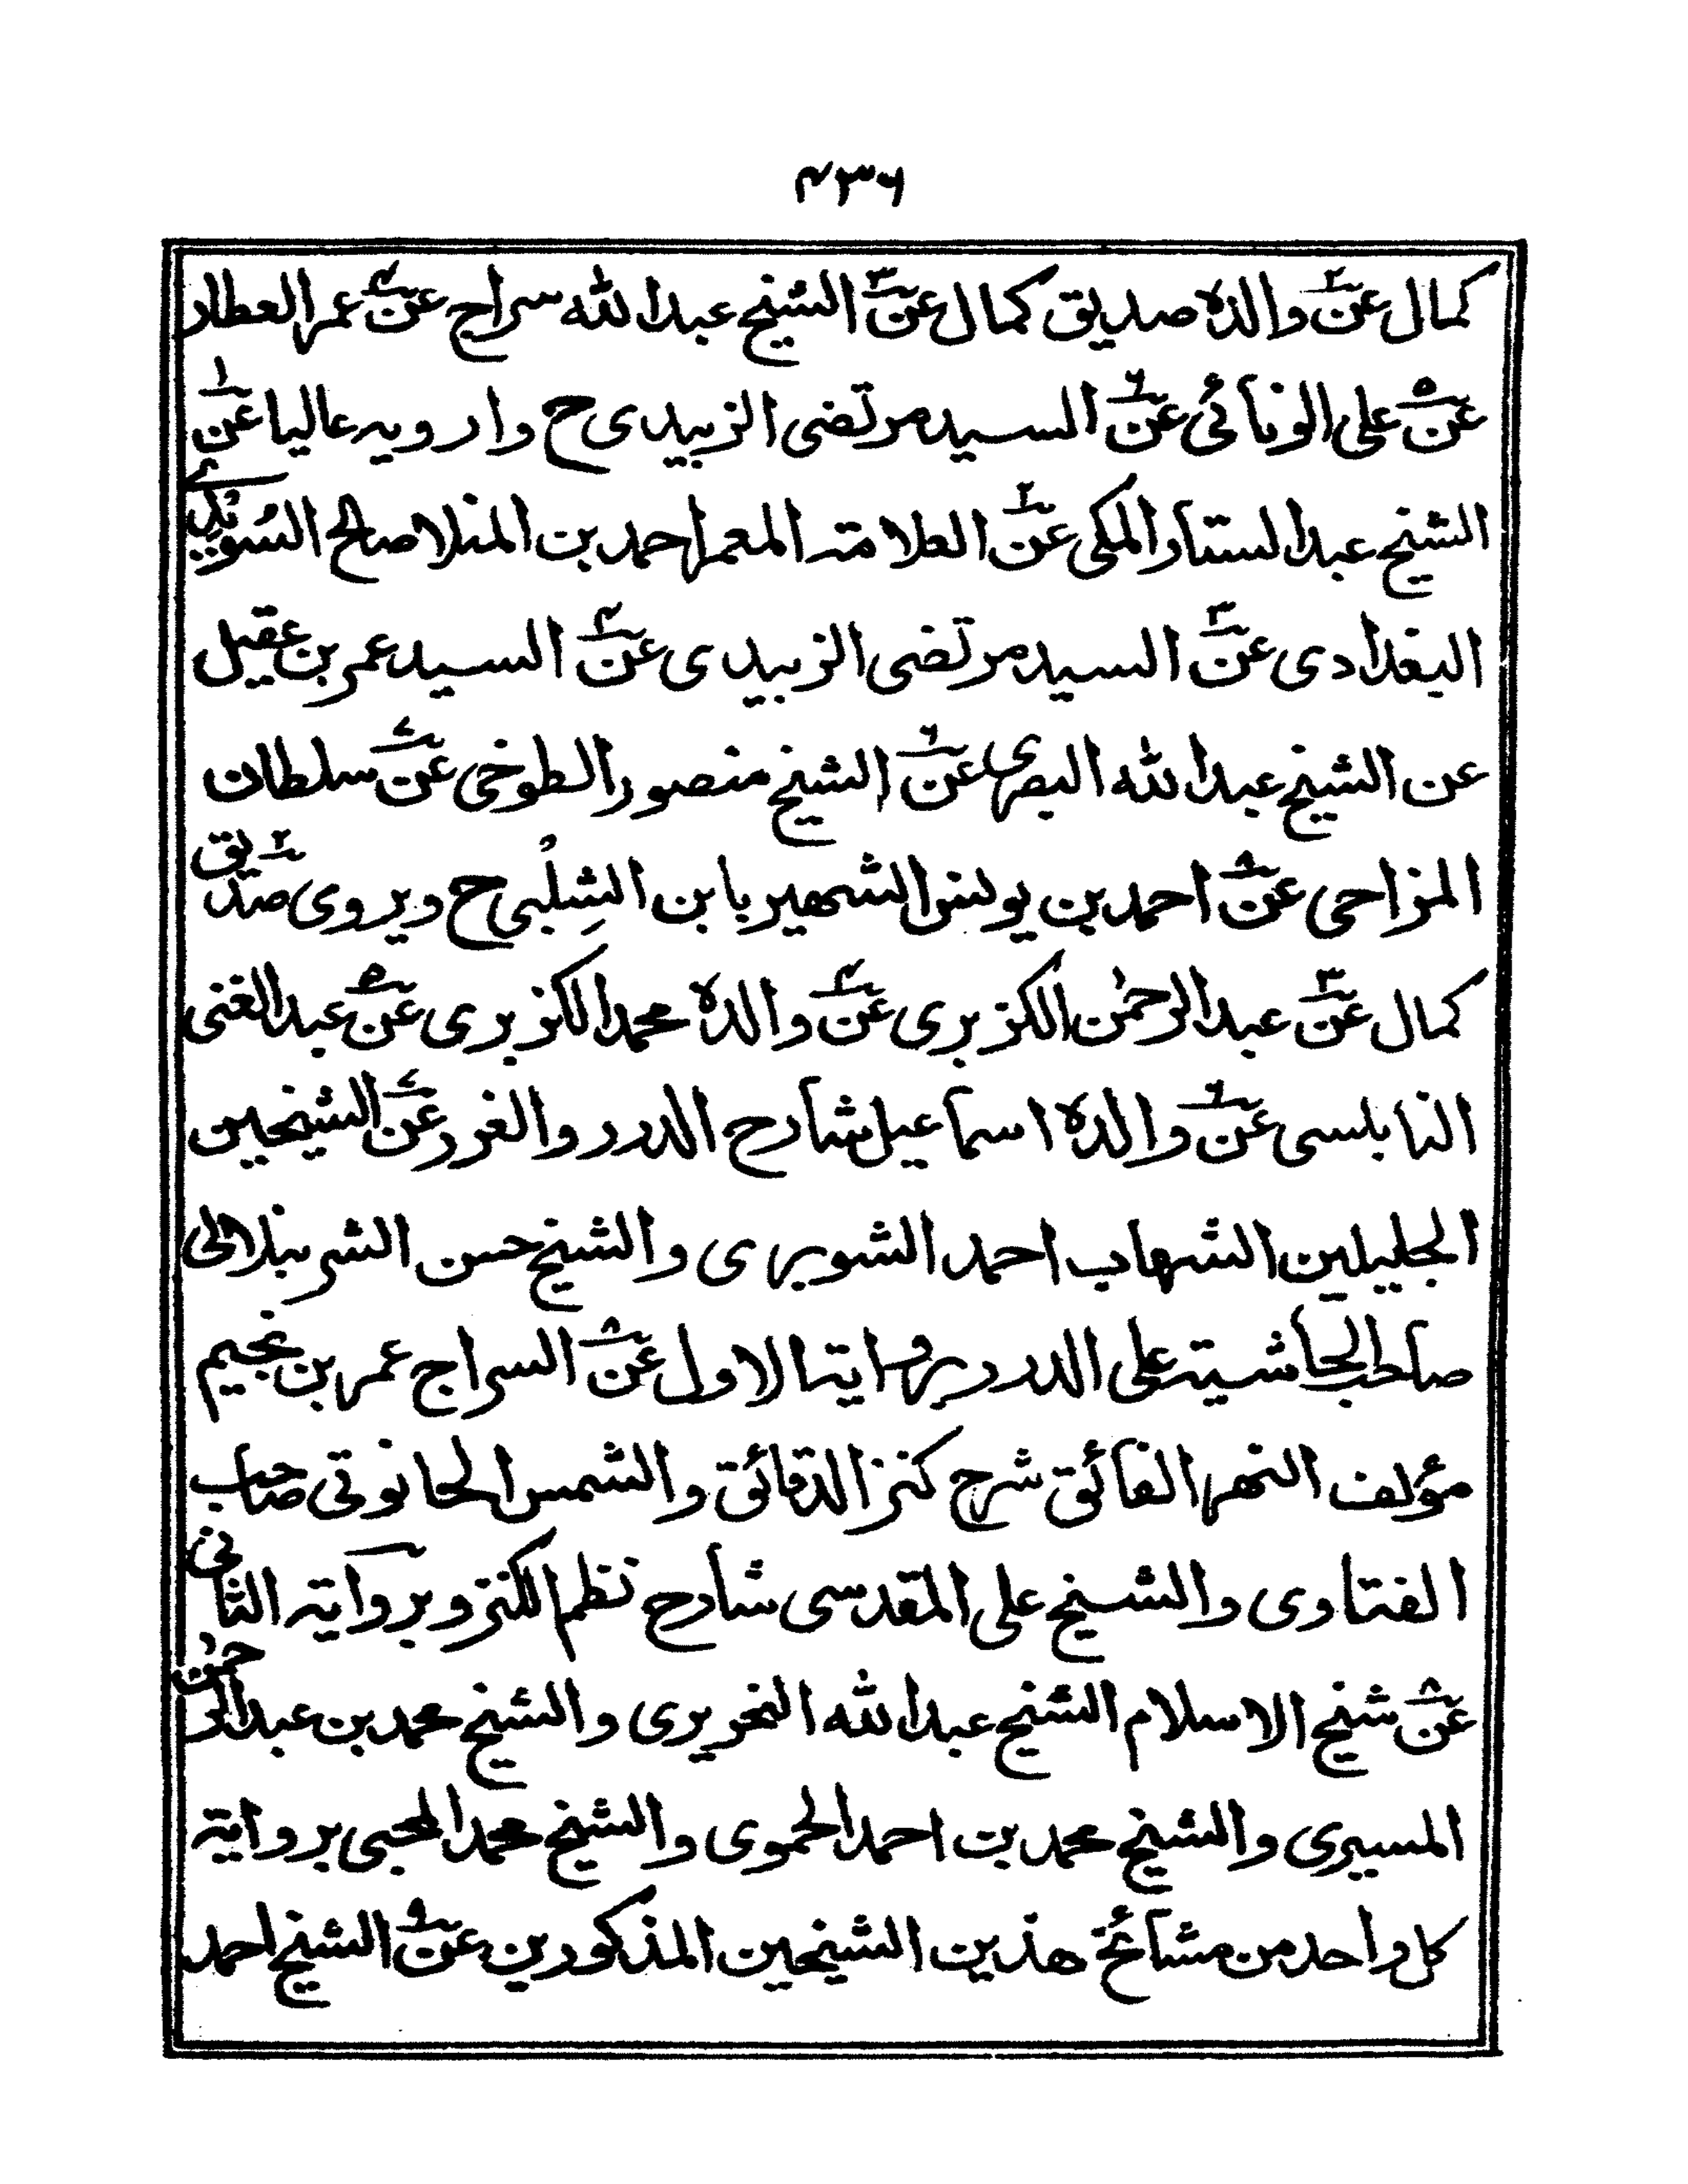 ۴۳۶
كمال عن۲ والده صديق كمال عن۳ الشيخ عبدالله سراج عن۴ عمر العطار
عن۵ على الونائى عن۶ السيد مرتضى الزبيدى ح وارويه عاليا عن۱
الشيخ عبدالستار المكى عن۲ العلامة المعمر احمد بن المنلا صالح السُويدى
البغدادى عن۳ السيد مرتضى الزبيدى عن۴ السيد عمر بن عقيل
عن الشيخ عبدالله البصرى عن۶ الشيخ منصور الطوخى عن۷ سلطان
المزاحى عن۸ احمد بن يونس الشهير بابن الشِلْبى ح ويروى صديق۲
كمال عن۳ عبدالرحمٰن الكزبرى عن۴ والده محمد الكزبرى عن۵ عبدالغنى
النابلسى عن۶ والده اسماعيل شارح الدرر والغرر عن۷ الشيخين
الجليلين الشهاب احمد الشوبرى والشيخ حسن الشرنبلالى
صاحب الحاشية على الدرر برواية الاول عن۸ السراج عمر بن نجيم
مؤلف النهر الفائق شرح كنز الدقائق والشمس الحانوتى صاحب
الفتاوى والشيخ على المقدسى شارح نظم الكنز وبرواية الثانى
عن۸ شيخ الاسلام الشيخ عبدالله النحريرى والشيخ محمد بن عبدالرحمٰن
المسيرى والشيخ محمد بن احمد الحموى والشيخ محمد المحبى برواية
كل واحد من مشائخ هذين الشيخين المذكورين عن۹ الشيخ احمد